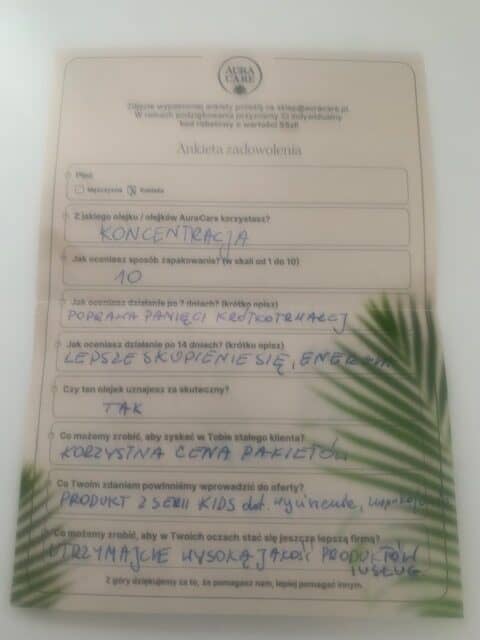 AURA
CARE
Zdjęcie wypełnionej ankiety prześlij na sklep@auracare.pl
W ramach podziękowania przyznamy Ci indywidualny
kod rabatowy o wartości
Ankieta zadowolenia
Płeć
Mężczyzna Kobieta
Z jakiego olejku / olejków AuraCare korzystasz?
KONCENTRACJA
Jak oceniasz sposób zapakowania? (w skali od 1 do 10)
10
Jak oceniasz działanie po 7 dniach? (krótko opisz)
POPRAWA PAMIĘCI KRÓTKOTRWAŁEJ
Jak oceniasz działanie po 14 dniach? (krótko opisz)
LEPSZE SKUPIENIE SIĘ, ENERGIA
Czy ten olejek uznajesz za skuteczny?
TAK
Co możemy zrobić, aby zyskać w Tobie stałego klienta?
KORZYSTNA CENA PAKIETÓW
Co Twoim zdaniem powinniśmy wprowadzić do oferty?
PRODUKT Z SERII KIDS dot. wyciszenie,
Co możemy zrobić, aby w Twoich oczach stać się jeszcze lepszą firmą?
UTRZYMAJCIE WYSOKĄ JAKOŚĆ PRODUKTÓW
I USŁUG
Z góry dziękujemy za to, że pomagasz nam, lepiej pomagać innym.